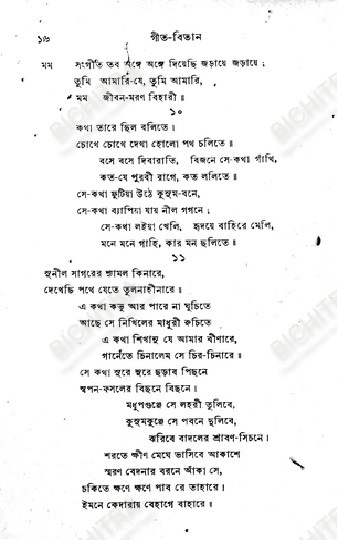 ১৬ গীত-বিতান
মম সংগীত তব অঙ্গে অঙ্গে দিয়েছি জড়ায়ে জড়ায়ে;
তুমি আমারি-যে, তুমি আমারি,
মম জীবন-মরণ বিহারী॥
১০
কথা তারে ছিল বলিতে॥
চোখে চোখে দেখা হোলো পথ চলিতে॥
বসে বসে দিবারাতি, বিজনে সে-কথা গাঁথি,
কত-যে পুরবী রাগে, কত ললিতে॥
সে-কথা ফুটিয়া উঠে কুসুম-বনে,
সে-কথা ব্যাপিয়া যায় নীল গগনে;
সে-কথা লইয়া খেলি, হৃদয়ে বাহিরে মেলি,
মনে মনে গাহি, কার মন ছলিতে॥
১১
সুনীল সাগরের শ্যামল কিনারে,
দেখেছি পথে যেতে তুলনাহীনারে॥
এ কথা কভু আর পারে না ঘুচিতে
আছে সে নিখিলের মাধুরী রুচিতে
এ কথা শিখানু যে আমার বীণারে,
গানেতে চিনালেম সে চির-চিনারে॥
সে কথা সুরে সুরে ছড়াব পিছনে
স্বপন-ফসলের বিছনে বিছনে॥
মধুপগুঞ্জে সে লহরী তুলিবে,
কুসুমকুঞ্জে সে পবনে দুলিবে,
ঝরিবে বাদলের শ্রাবণ-সিচনে॥
শরতে ক্ষীণ মেঘে ভাসিবে আকাশে
স্মরণ বেদনার বরনে আঁকা সে,
চকিতে ক্ষণে ক্ষণে পাব রে তাহারে॥
ইমনে কেদারায় বেহাগে বাহারে॥
BICHITRA